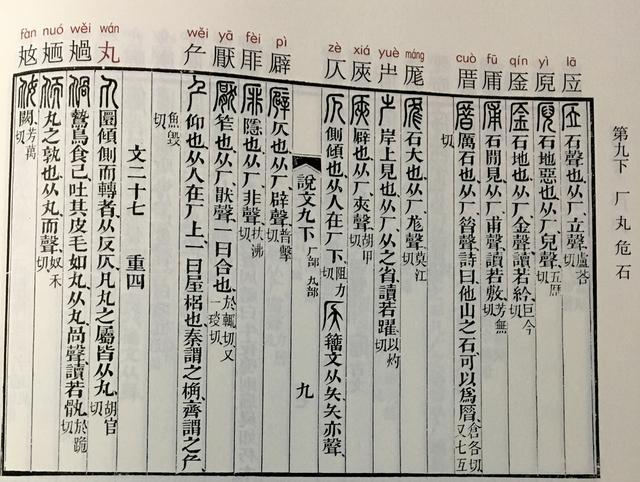 第九下 厂丸危石
lā
yì
qín
fū
cuò
máng
yuè
xiá
zè
pì
fèi
yā
wěi
wán
wěi
nuó
fàn
石聲也从厂立聲盧荅切
石地惡也从厂兒聲五歷切
石地也从厂金聲讀若紟巨今切
石閒見从厂甫聲讀若敷芳無切
厲石也从厂㫺聲詩曰他山之石可以為厝倉各切又七互切
石大也从厂尨聲莫江切
岸上見也从厂从㞢省讀若躍以灼切
廦也从厂夾聲胡甲切
側傾也从人在厂下阻力切 籒文从矢矢亦聲
說文九下 厂部 丸部 九
仄也从厂辟聲普擊切
隱也从厂非聲扶沸切
笮也从厂猒聲一曰合也於輒切又一琰切
仰也从人在厂上一曰屋梠也秦謂之桷齊謂之厃魚毀切
文二十七 重四
丸 圜傾側而轉者从反仄凡丸之屬皆从丸胡官切
鷙鳥食已吐其皮毛如丸从丸咼聲讀若骫於跪切
丸之孰也从丸而聲奴禾切
闕芳萬切